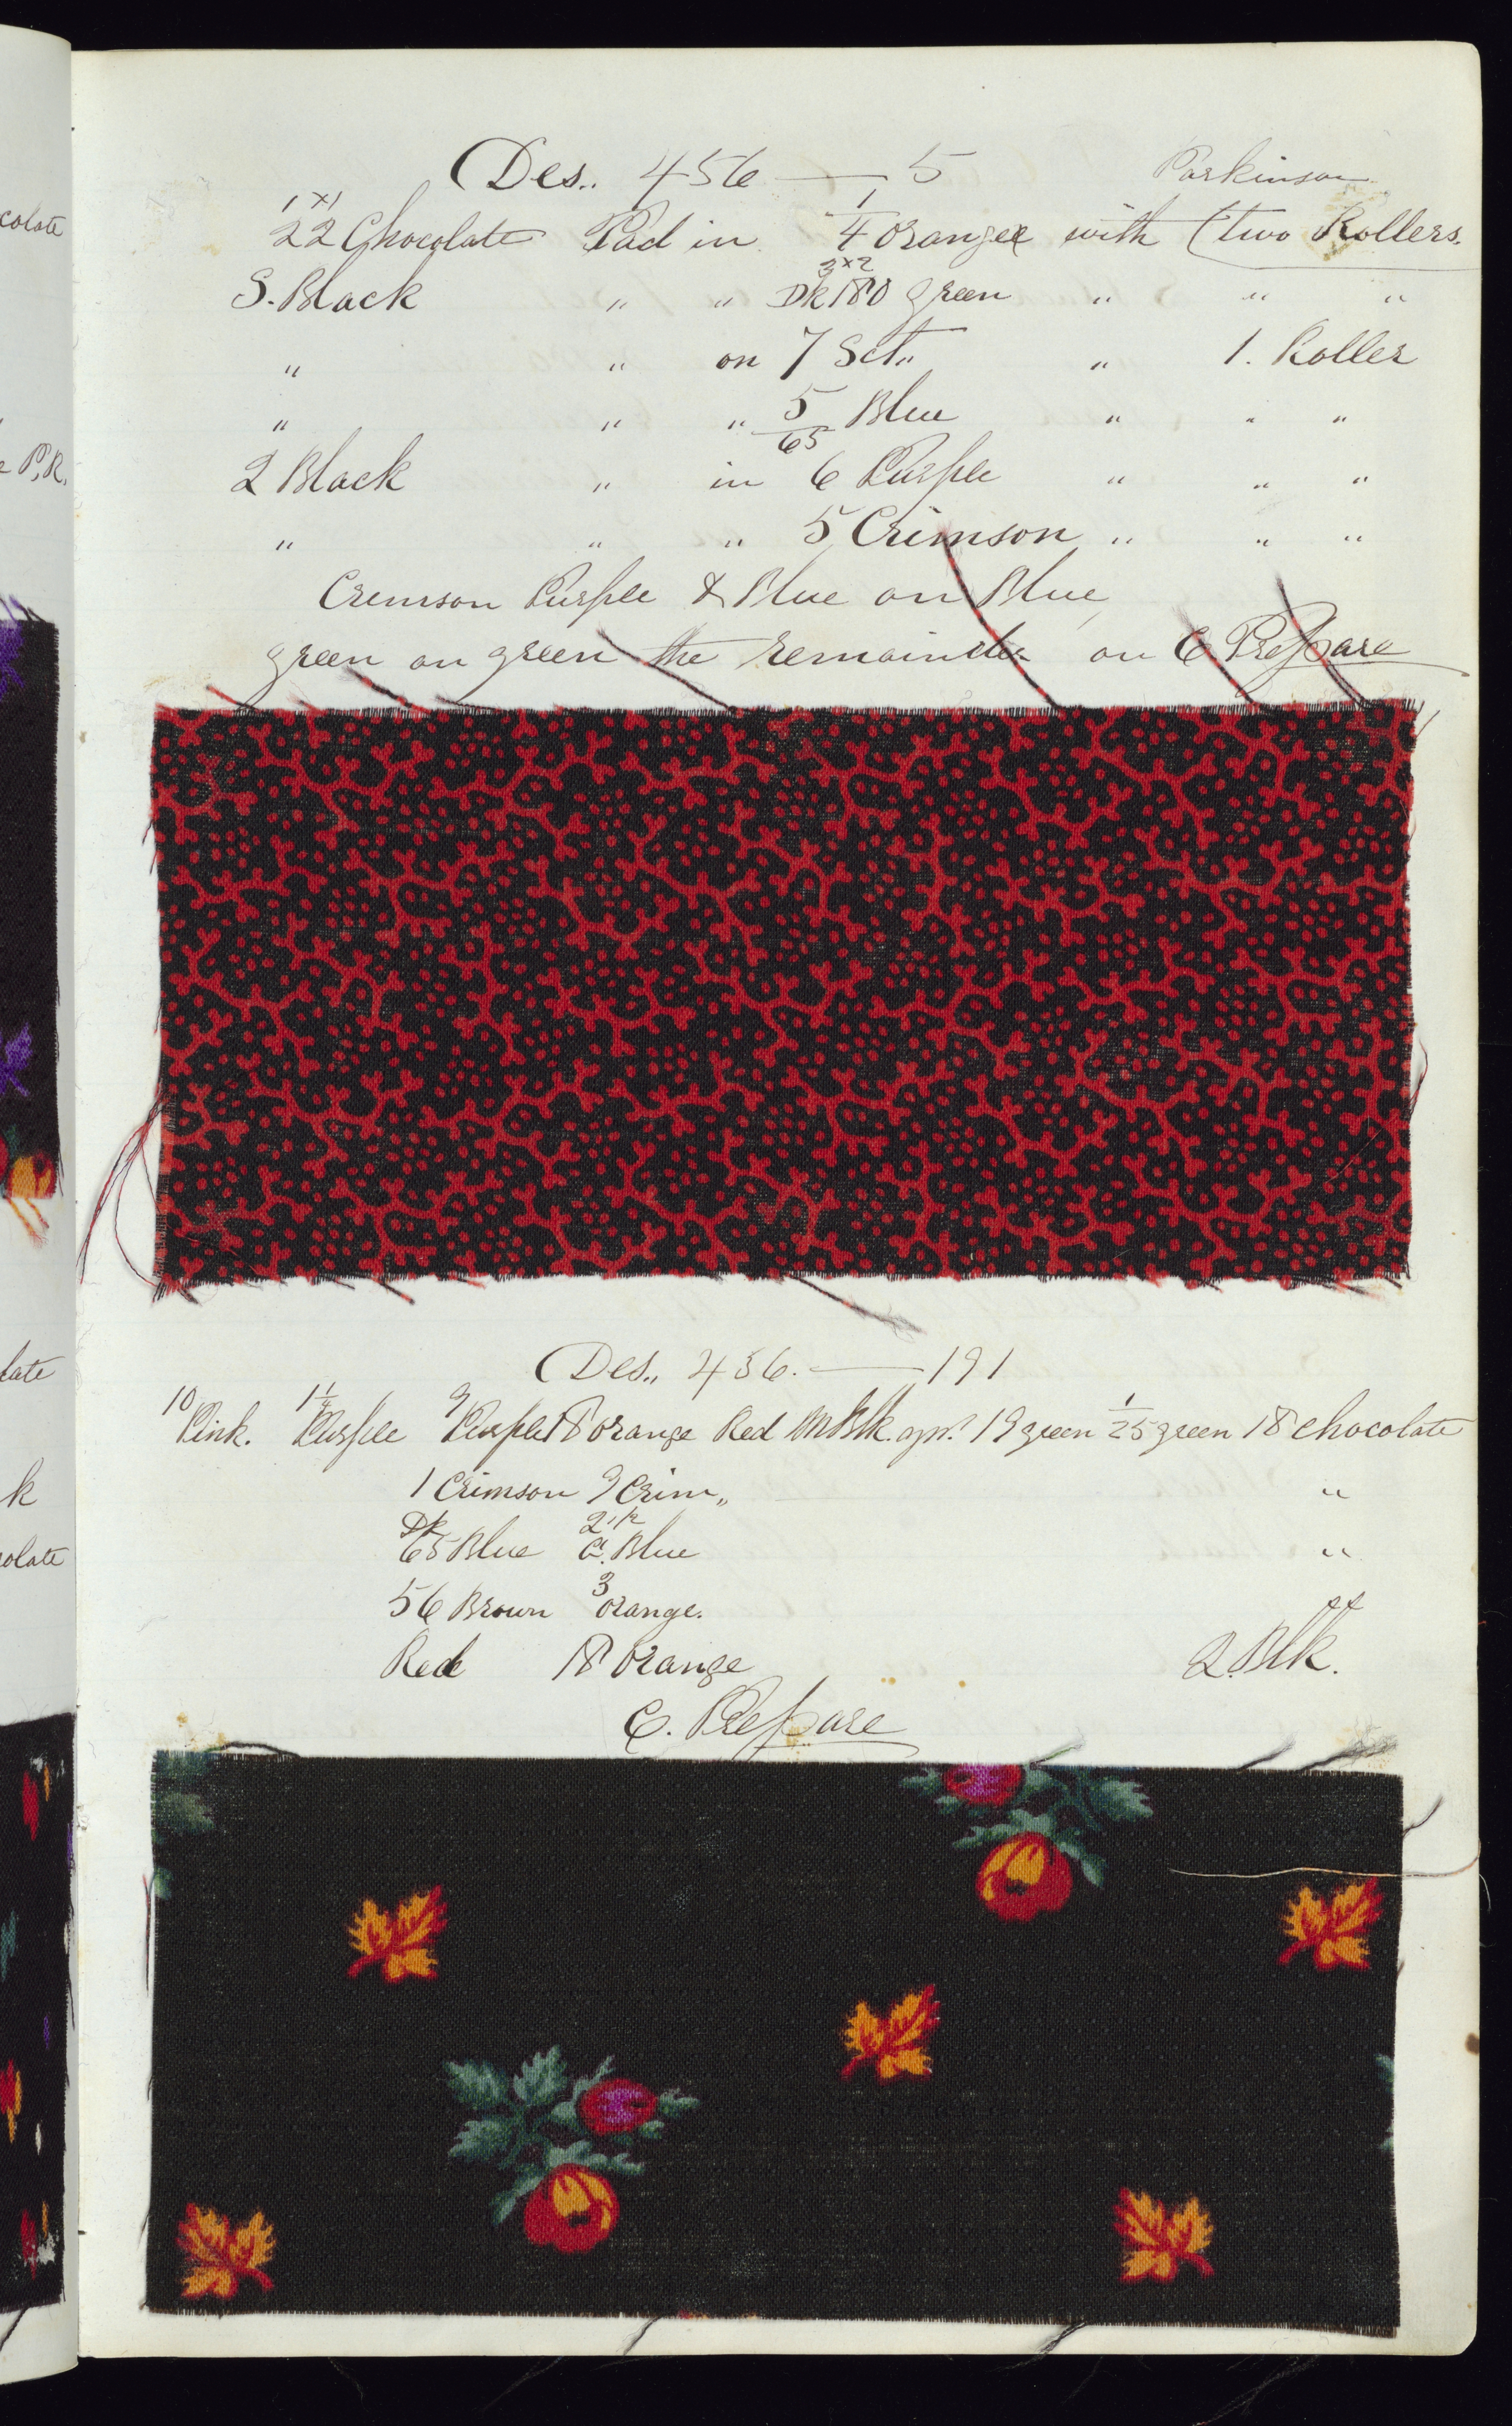 colate
e P.R.
late
k
colate
Des. 456 — 5 Parkinson
1 x 1
22 Chocolate Pad in 1/4 Orange with (two Rollers.
3x2
S. Black " " Dk 180 green " " "
" " on 7 Sct. " 1. Roller
" " " 5/65 Blue " " "
2 Black " in 6 Purple " " "
" " " 5 Crimson " " "
Cremson Purple & Blue on Blue
green on green the remainder on C Prepare
Des. 456. — 191
10 Pink. Purple 9 Purple 18 orange Red Blk. 19 green 1/25 green 18 chocolate
1 Crimson 9 Crim " "
Dk 65 Blue Blue "
56 Brown 3 orange.
Red 18 orange 2. Blk.
C. Prepare